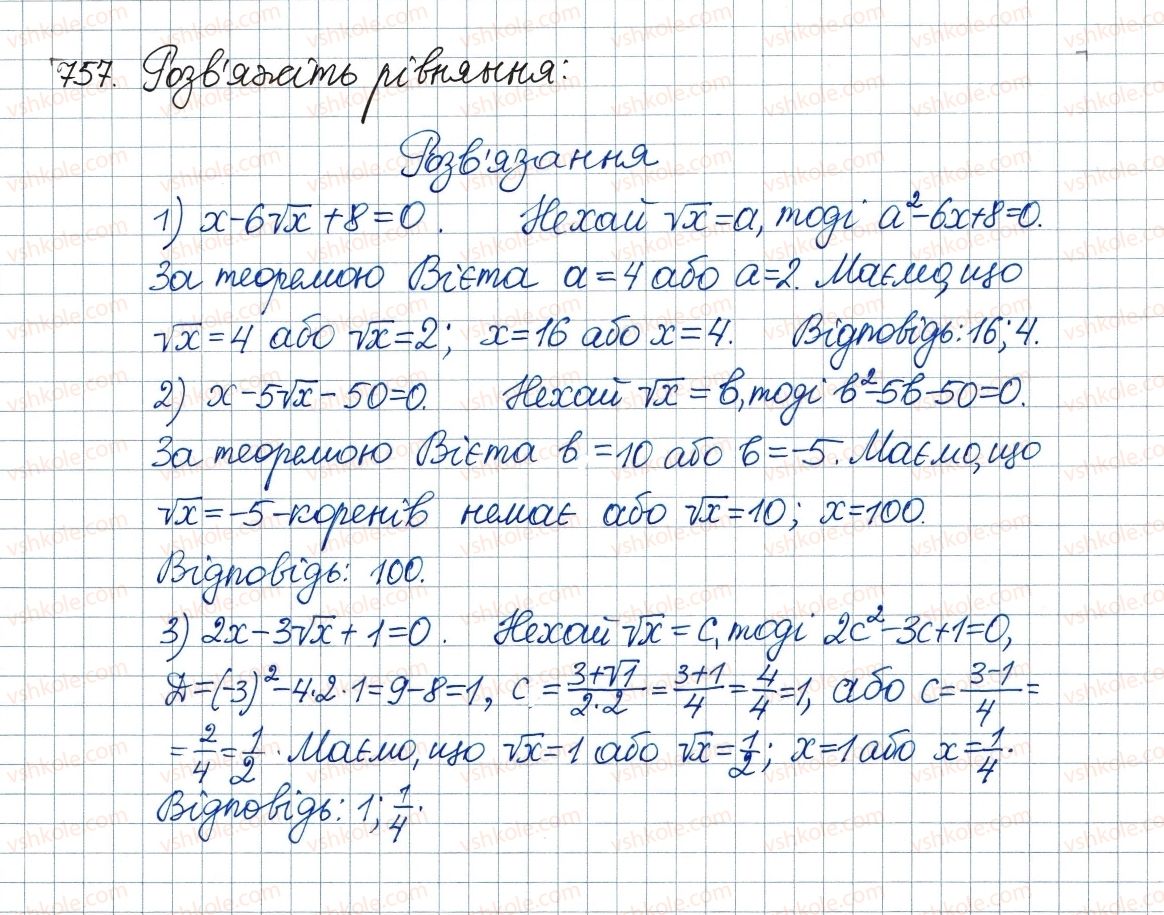 757. Розв'яжіть рівняння:
Розв'язання
1) x-6√x+8=0. Нехай √x=a, тоді a²-6x+8=0.
За теоремою Вієта a=4 або a=2. Маємо, що
√x=4 або √x=2; x=16 або x=4. Відповідь: 16; 4.
2) x-5√x-50=0. Нехай √x=в, тоді в²-5в-50=0.
За теоремою Вієта в=10 або в=-5. Маємо, що
√x=-5-коренів немає або √x=10; x=100.
Відповідь: 100.
3) 2x-3√x+1=0. Нехай √x=c, тоді 2c²-3c+1=0,
Д=(-3)²-4·2·1=9-8=1, c=(3+√1)/(2·2)=(3+1)/4=4/4=1, або c=(3-1)/4=
=2/4=1/2. Маємо, що √x=1 або √x=1/2; x=1 або x=1/4.
Відповідь: 1; 1/4.